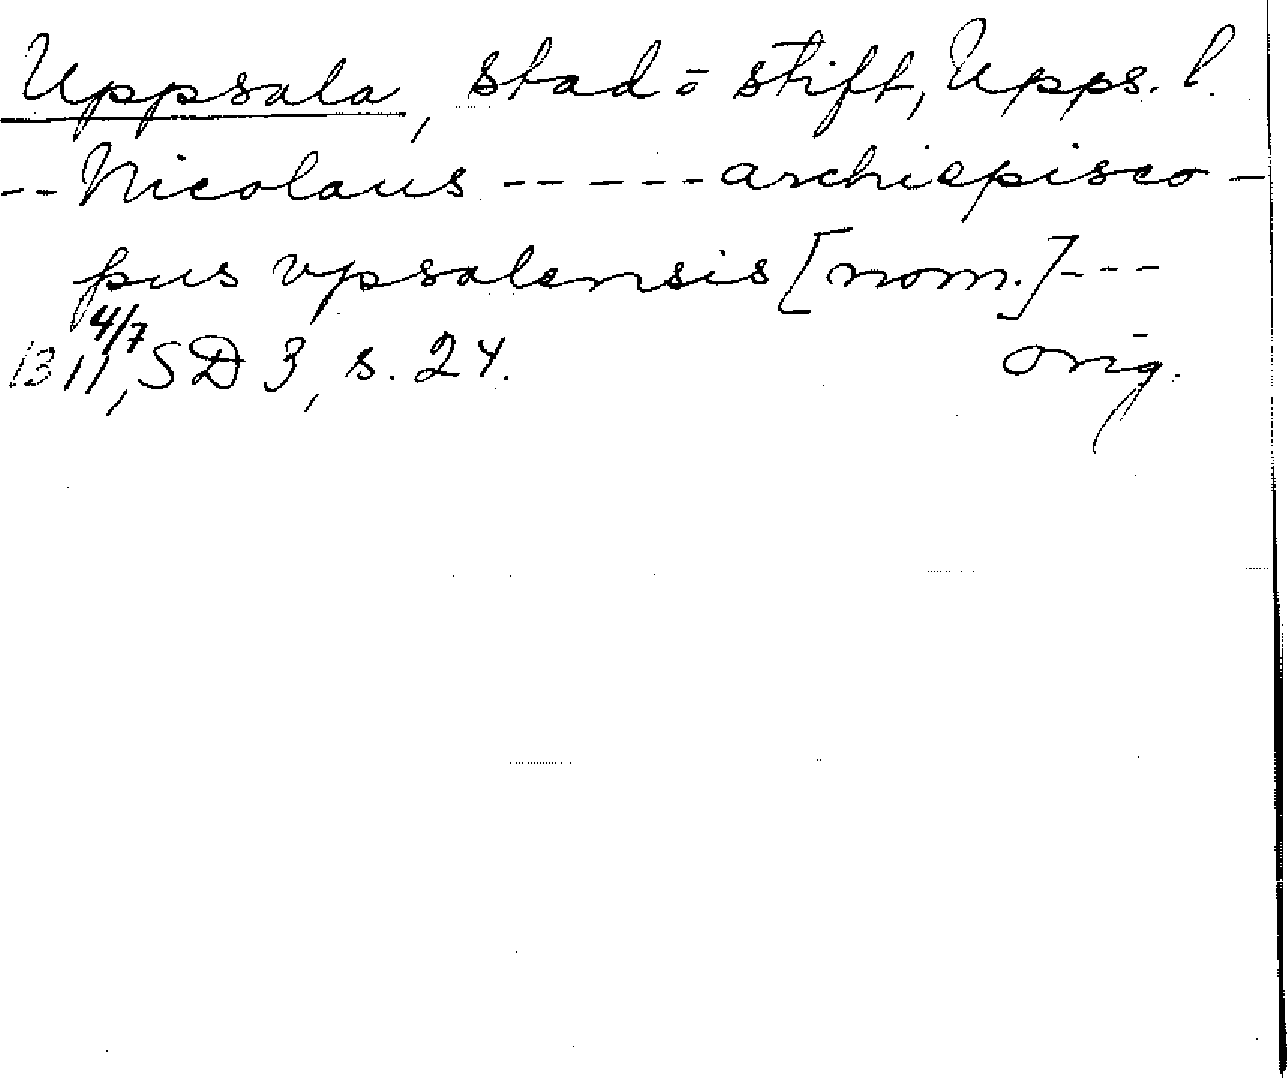 Uppsala, stad o stift, Upps. l.
-- Nicolaus ----- archiepisco-
pus vpsalensis [nom.] ---
1311 4/7, SD 3, s. 24. orig.